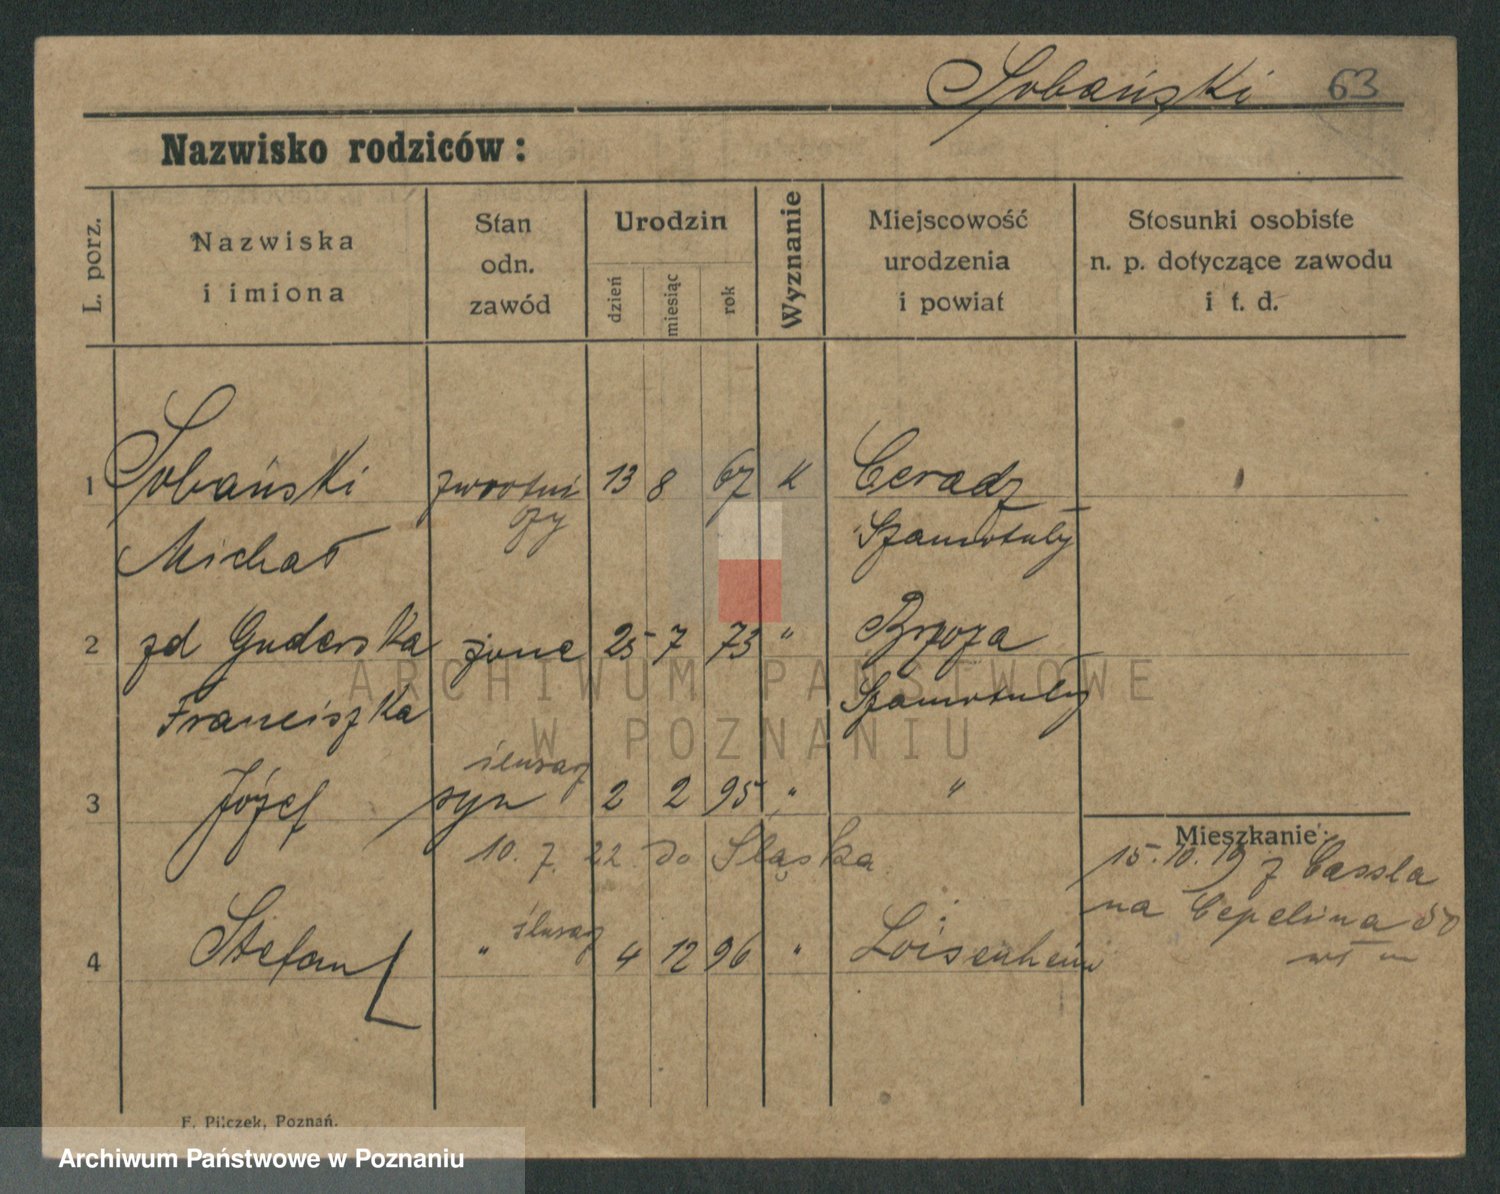 Sobański 63
Nazwisko rodziców:
L. porz.
Nazwiska
i imiona
Stan
odn.
zawód
Urodzin
dzień
miesiąc
rok
Wyznanie
Miejscowość
urodzenia
i powiat
Stosunki osobiste
n. p. dotyczące zawodu
i t. d.
1 Sobański zwrotni 13 8 67 K Ceradz
czy
Michał Szamotuły
2 zd Guderska żona 25 7 73 " Brzoza
Franciszka Szamotuły
ślusarz
3 Józef syn 2 2 95 " "
10. 7. 22 do Śląska
Mieszkanie:
15.10.19 z Cassla
na Cepelina
ślusarz
4 Stefan " 4 12 96 " Loisenheim
F. Pilczek, Poznań.
ARCHIWUM PAŃSTWOWE
W POZNANIU
Archiwum Państwowe w Poznaniu